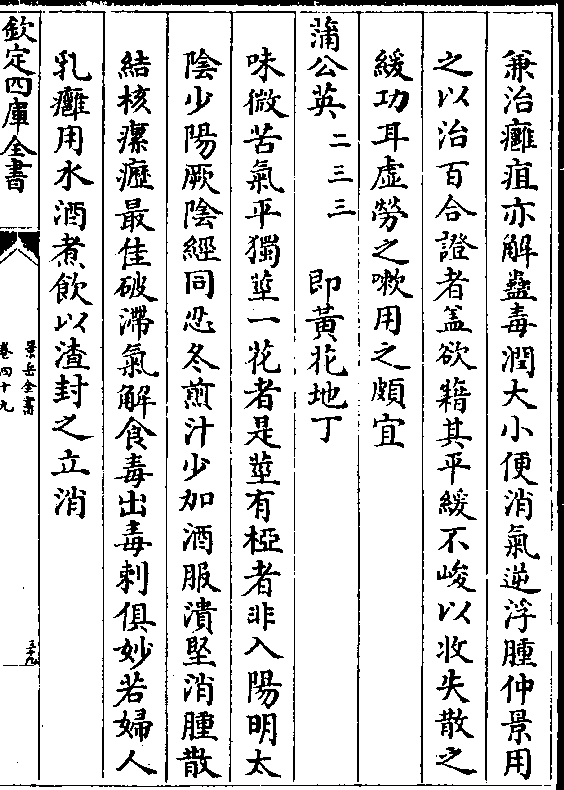 兼治癰疽亦解蠱毒潤大小便消氣逆浮腫仲景用
之以治百合證者盖欲籍其平緩不峻以收失散之
緩功耳虚勞之嗽用之頗宜
蒲公英 二三三 即黄花地丁
味微苦氣平獨莖一花者是莖有椏者非入陽明太
陰少陽厥陰經同忍冬煎汁少加酒服潰堅消腫散
結核瘰癧最佳破滯氣解食毒出毒刺俱妙若婦人
乳癰用水酒煮飲以渣封之立消
欽定四庫全書
景岳全書
卷四十九